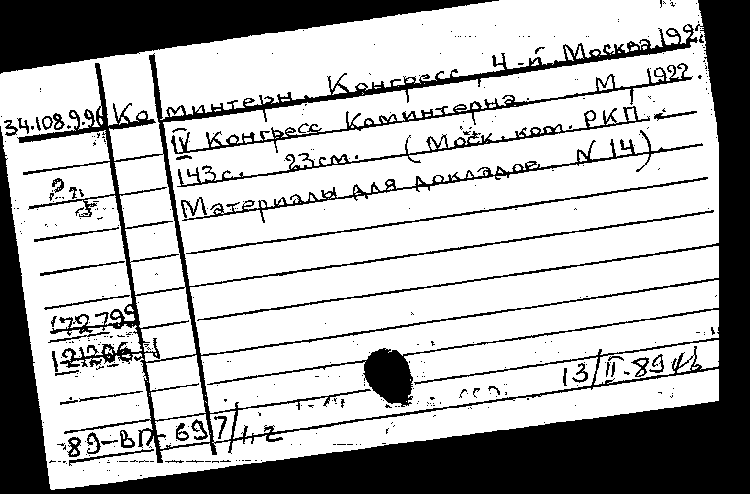 34.108.9.96 Коминтерн. Конгресс, 4-й. Москва. 1922
IV Конгресс Коминтерна. М., 1922.
143 с. 23 см. (Моск. ком. РКП.
Материалы для докладов N 14).
172799
121206
13/II-89
89-ВП-697/1,2